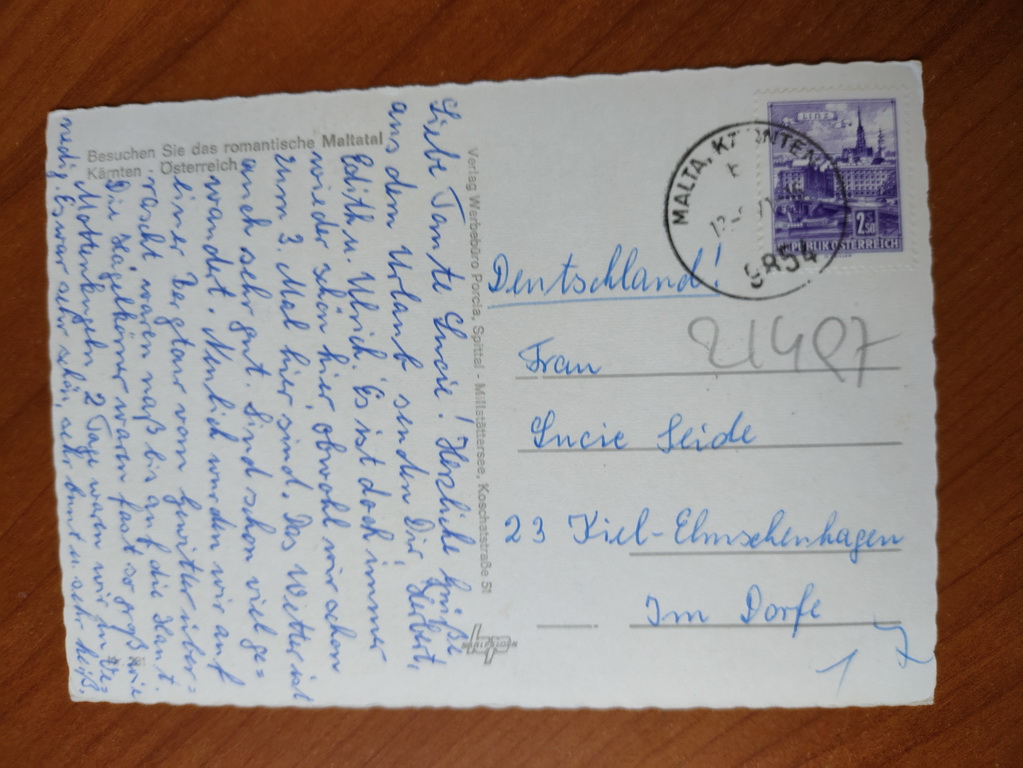 Besuchen Sie das romantische Maltatal
Kärnten - Österreich
Liebe Tante Lucie! Herzliche Grüße
aus dem Urlaub senden Dir, Herbert,
Edith u. Ulrich. Es ist doch immer
wieder schön hier, obwohl wir schon
zum 3. Mal hier sind. Das Wetter ist
auch sehr gut. Sind schon viel ge=
wandert. Neulich wurden wir auf
einer Bergtour vom Gewitter über=
rascht, waren naß bis auf die Haut.
Die Hagelkörner waren fast so groß wie
Mottenkugeln. 2 Tage waren wir in Ve=
nedig. Es war sehr schön, sehr bunt u. sehr heiß.
Verlag Werbebüro Porcia, Spittal - Millstättersee, Koschatstraße 51
LINZ
2.50
REPUBLIK ÖSTERREICH
MALTA, KÄRNTEN
9854
Deutschland!
21407
Frau
Lucie Seide
23 Kiel-Elmschenhagen
Im Dorfe
17